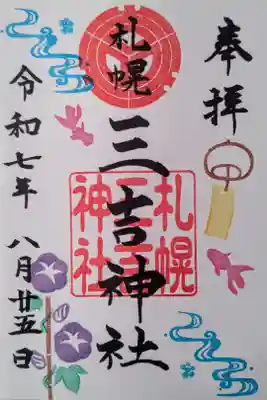 奉拝
札幌
三吉神社
札幌
三吉
神社
令和七年 八月廿五日